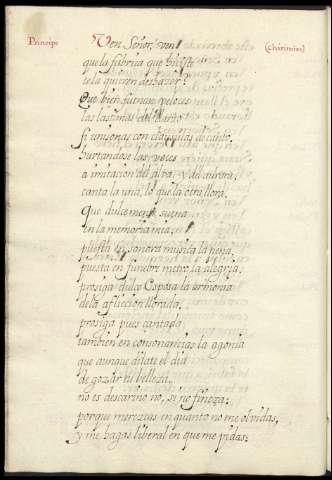 Principe Ven Señor, ven (Chirimias)
que la fabrica que hiciste
te la quieren deshazer.
Que bien suenan veloces
las lastimas del llanto
si unisonas con clausulas de canto,
hurtandose las voces
a imitacion del alba, y del aurora,
canta la una, lo que la otra llora.
Que dulcemente suena
en la memoria mia,
puesta en sonora musica la pena,
puesta en funebre metro la alegria,
prosiga dulce Capilla la armonia
dela afliccion llorada,
prosiga pues cantada
tambien en consonancias la agonia
que aunque dilate el dia
de gozar tu belleza,
no es descariño no, si no fineza:
porque merezcas en quanto no me olvidas,
y me hagas liberal en que me pidas: